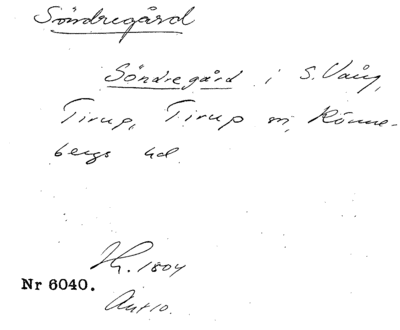 Söndregård
Söndregård i S. Vång,
Tirup, Tirup sn, Rönne-
bergs hd
Hf. 1804
Nr 6040.
Ant 10.